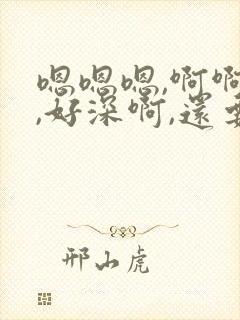 嗯嗯嗯,啊啊
,好深啊,還
邢山虎